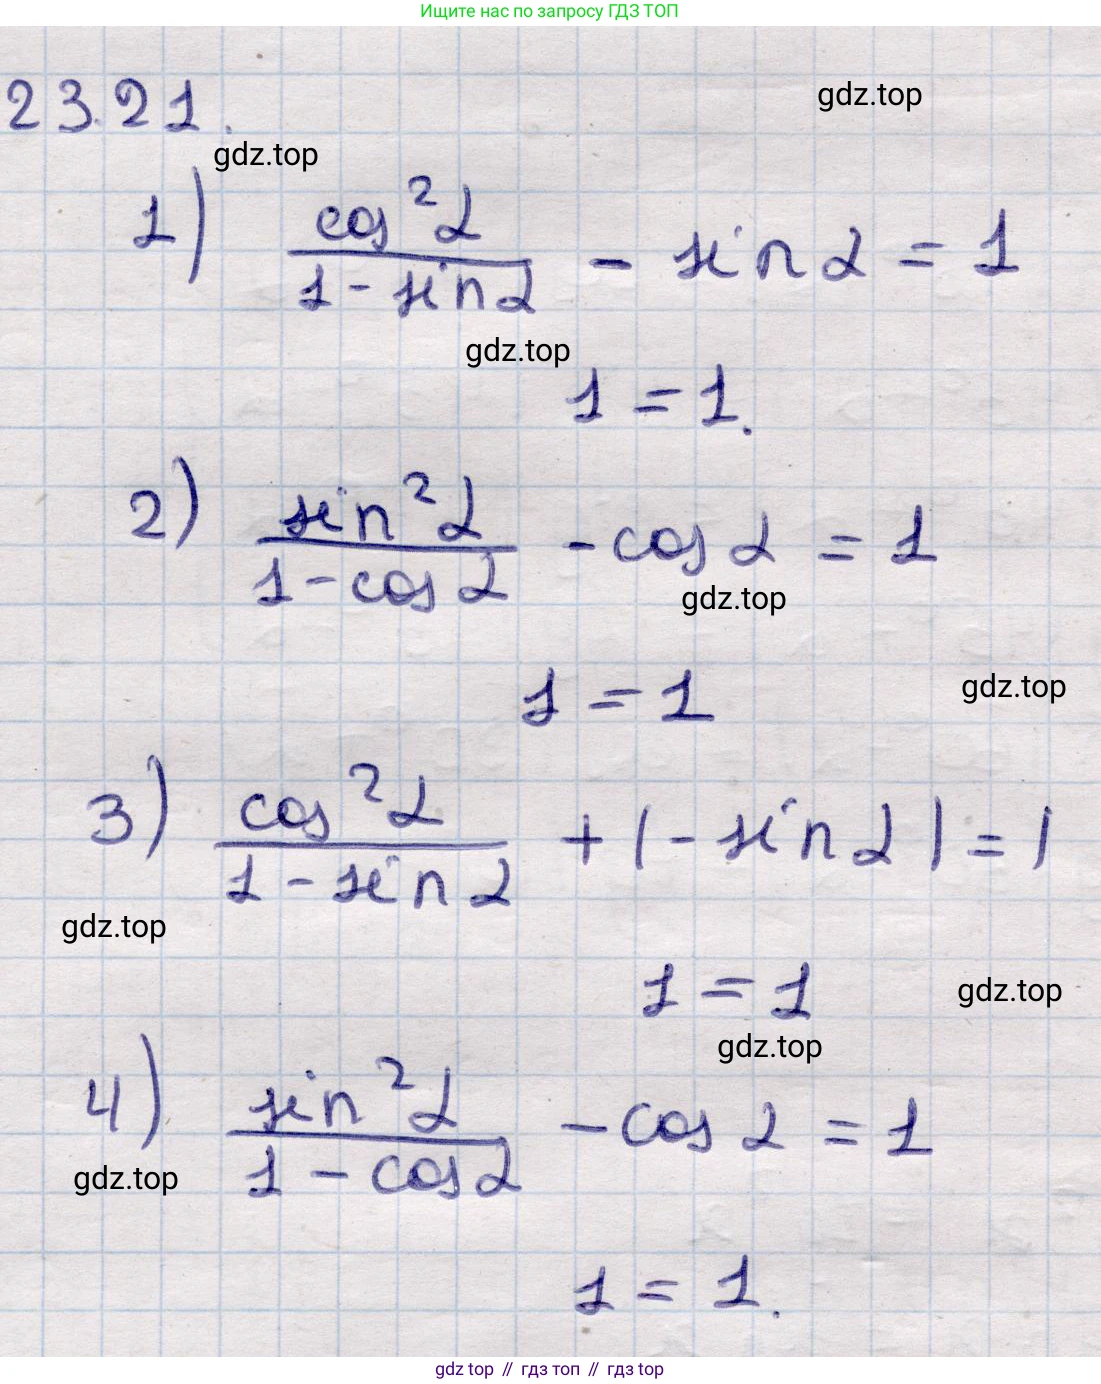 Ищите нас по запросу ГДЗ ТОП
23.21.
gdz.top
gdz.top
1) cos²α / 1 - sinα - sinα = 1
gdz.top
1 = 1.
2) sin²α / 1 - cosα - cosα = 1
gdz.top
1 = 1
gdz.top
3) cos²α / 1 - sinα + (-sinα) = 1
gdz.top
1 = 1
gdz.top
gdz.top
4) sin²α / 1 - cosα - cosα = 1
gdz.top
1 = 1.
gdz top // гдз топ // гдз top